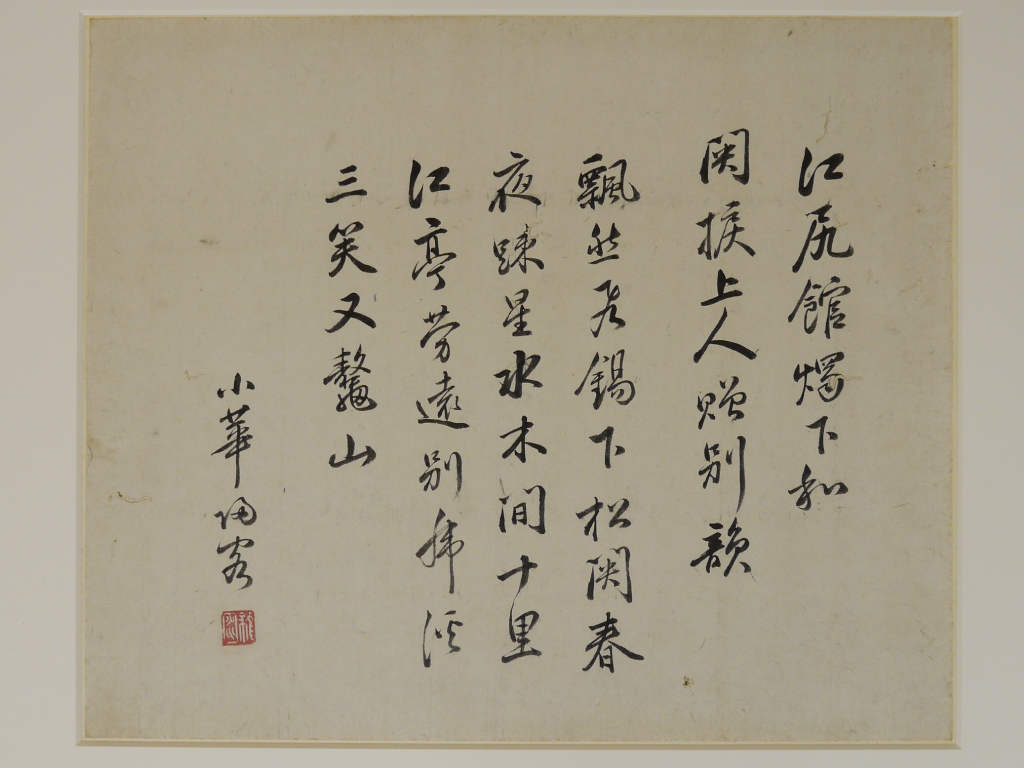 江尻館燭下和
関捩上人贈別韻
飄然飛錫下松関春
夜踈星水木間十里
江亭労遠別虎渓
三笑又鼇山
小華帰客